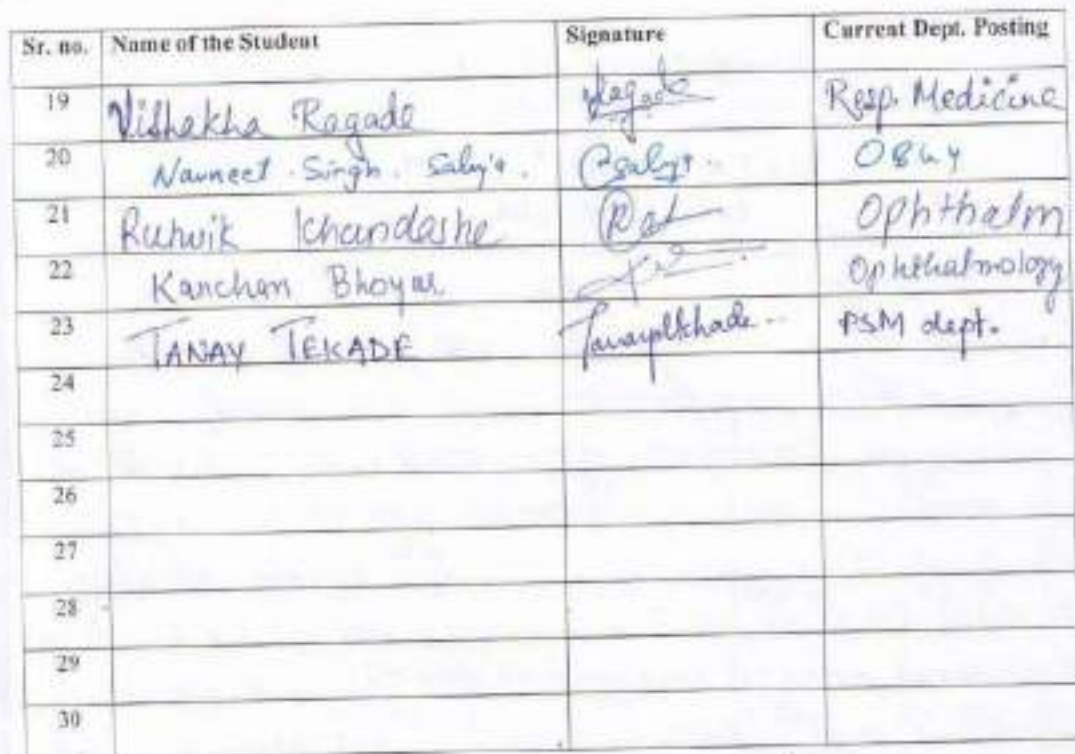 Sr. no. Name of the Student Signature Current Dept. Posting
19 Vishakha Ragade Ragade Resp. Medicine
20 Navneet Singh. Saluja. OBGY
21 Rutwik Khandashe Ophthalm
22 Kanchan Bhoyar Ophthalmology
23 TANAY TEKADE PSM dept.
24
25
26
27
28
29
30